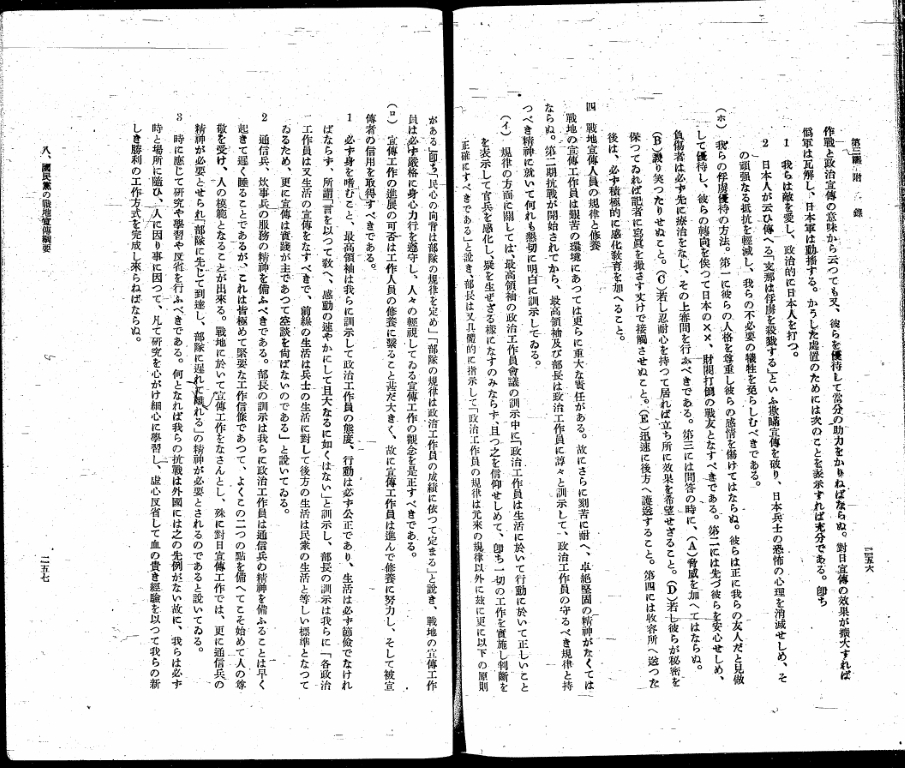 第三期附錄
二五六
作戰と政治宣傳の意味から云つても又、彼らを優待して當分の助力をかりねばならぬ。對日宣傳の效果が擴大すれば
僞軍は瓦解し、日本軍は動搖する。かうした措置のためには次のことを表示すれば充分である。卽ち
1　我らは敵を愛し、政治的に日本人を打つ。
2　日本人が云ひ傳へる「支那は俘虜を殺戮する」といふ欺瞞宣傳を破り、日本兵士の恐怖の心理を消滅せしめ、そ
の頑强なる抵抗を輕減し、我らの不必要の犧牲を免らしむべきである。
(ホ)　我らの俘虜優待の方法。第一に彼らの人格を尊重し彼らの感情を傷けてはならぬ。彼らは正に我らの友人だと見做
して優待し、彼らの轉向を俟つて日本の××、財閥打倒の戰友となすべきである。第二には先づ彼らを安心せしめ、
負傷者は必ず先に療治をなし、その上審問を行ふべきである。第三には問答の時に、(A)脅威を加へてはならぬ。
(B)譏り笑つたりせぬこと。(C)若し忍耐心を持つて居れば立ち所に效果を希望せざること。(D)若し彼らが秘密を
保つてゐれば記者に寫眞を撮さす丈けで接觸させぬこと。(E)迅速に後方へ護送すること。第四には收容所へ送つた
後は、必ず積極的に感化敎育を加へること。
四　戰地宣傳人員の規律と修養
戰地の宣傳工作人員は艱苦の環境にあつては更らに重大な責任がある。故にさらに刻苦に耐へ、卓絕堅固の精神がなくては
ならぬ。第二期抗戰が開始されてから、最高領袖及び部長は政治工作員に諄々と訓示して、政治工作員の守るべき規律と持
つべき精神に就いて何れも懇切に明白に訓示してゐる。
(イ)　規律の方面に關しては、最高領袖の政治工作員會議の訓示中に「政治工作員は生活に於いて行動に於いて正しいこと
を表示して官兵を感化し、疑を生ぜざる樣になすのみならず且つ之を信仰せしめて、卽ち一切の工作を實施し判斷を
正確にすべきである」と說き、部長は又具體的に指示して「政治工作員の規律は元來の規律以外に玆に更に以下の原則
がある「卽ち「民心の向背は部隊の規律を定め」「部隊の規律は政治工作員の成績に依つて定まる」と說き、戰地の宣傳工作
員は必ず嚴格に身心力行を遵守し、人々の輕視してゐる宣傳工作の觀念を是正すべきである。
(ロ)　宣傳工作の進展の可否は工作人員の修養に繫ること甚だ大きく、故に宣傳工作員は進んで修養に努力し、そして被宣
傳者の信用を取得すべきである。
1　必ず身を嗜むこと、最高領袖は我らに訓示して政治工作員の態度、行動は必ず公正であり、生活は必ず節儉でなけれ
ばならず、所謂「言を以つて敎へ、感動の速やかにして且大なるに如くはない」と訓示し、部長の訓示は我らに「各政治
工作員は又生活の宣傳をなすべきで、前線の生活は兵士の生活に對して後方の生活は民衆の生活と等しい標準となつて
ゐるため、更に宣傳は實踐が主であつて空談を尙ばないのである」と說いてゐる。
2　通信兵、炊事兵の服務の精神を備ふべきである。部長の訓示は我らに政治工作員は通信兵の精神を備ふることは早く
起きて遲く睡ることであるが、これは皆極めて緊要な工作信條であつて、よくこの二つの點を備へてこそ始めて人の尊
敬を受け、人の模範となることが出來る。戰地に於いて宣傳工作をなさんとし、殊に對日宣傳工作では、更に通信兵の
精神が必要とせられ「部隊に先じて到達し、部隊に遲れて離れる」の精神が必要とされるのであると說いてゐる。
3　時に應じて硏究や學習や反省を行ふべきである。何となれば我らの抗戰は外國には之の先例がない故に、我らは必ず
時と場所に隨ひ、人に因り事に因つて、凡て硏究を心がけ細心に學習し、虛心反省して血の貴き經驗を以つて我らの新
しき勝利の工作方式を完成し來らねばならぬ。
八、國民黨の戰地宣傳綱要
二五七